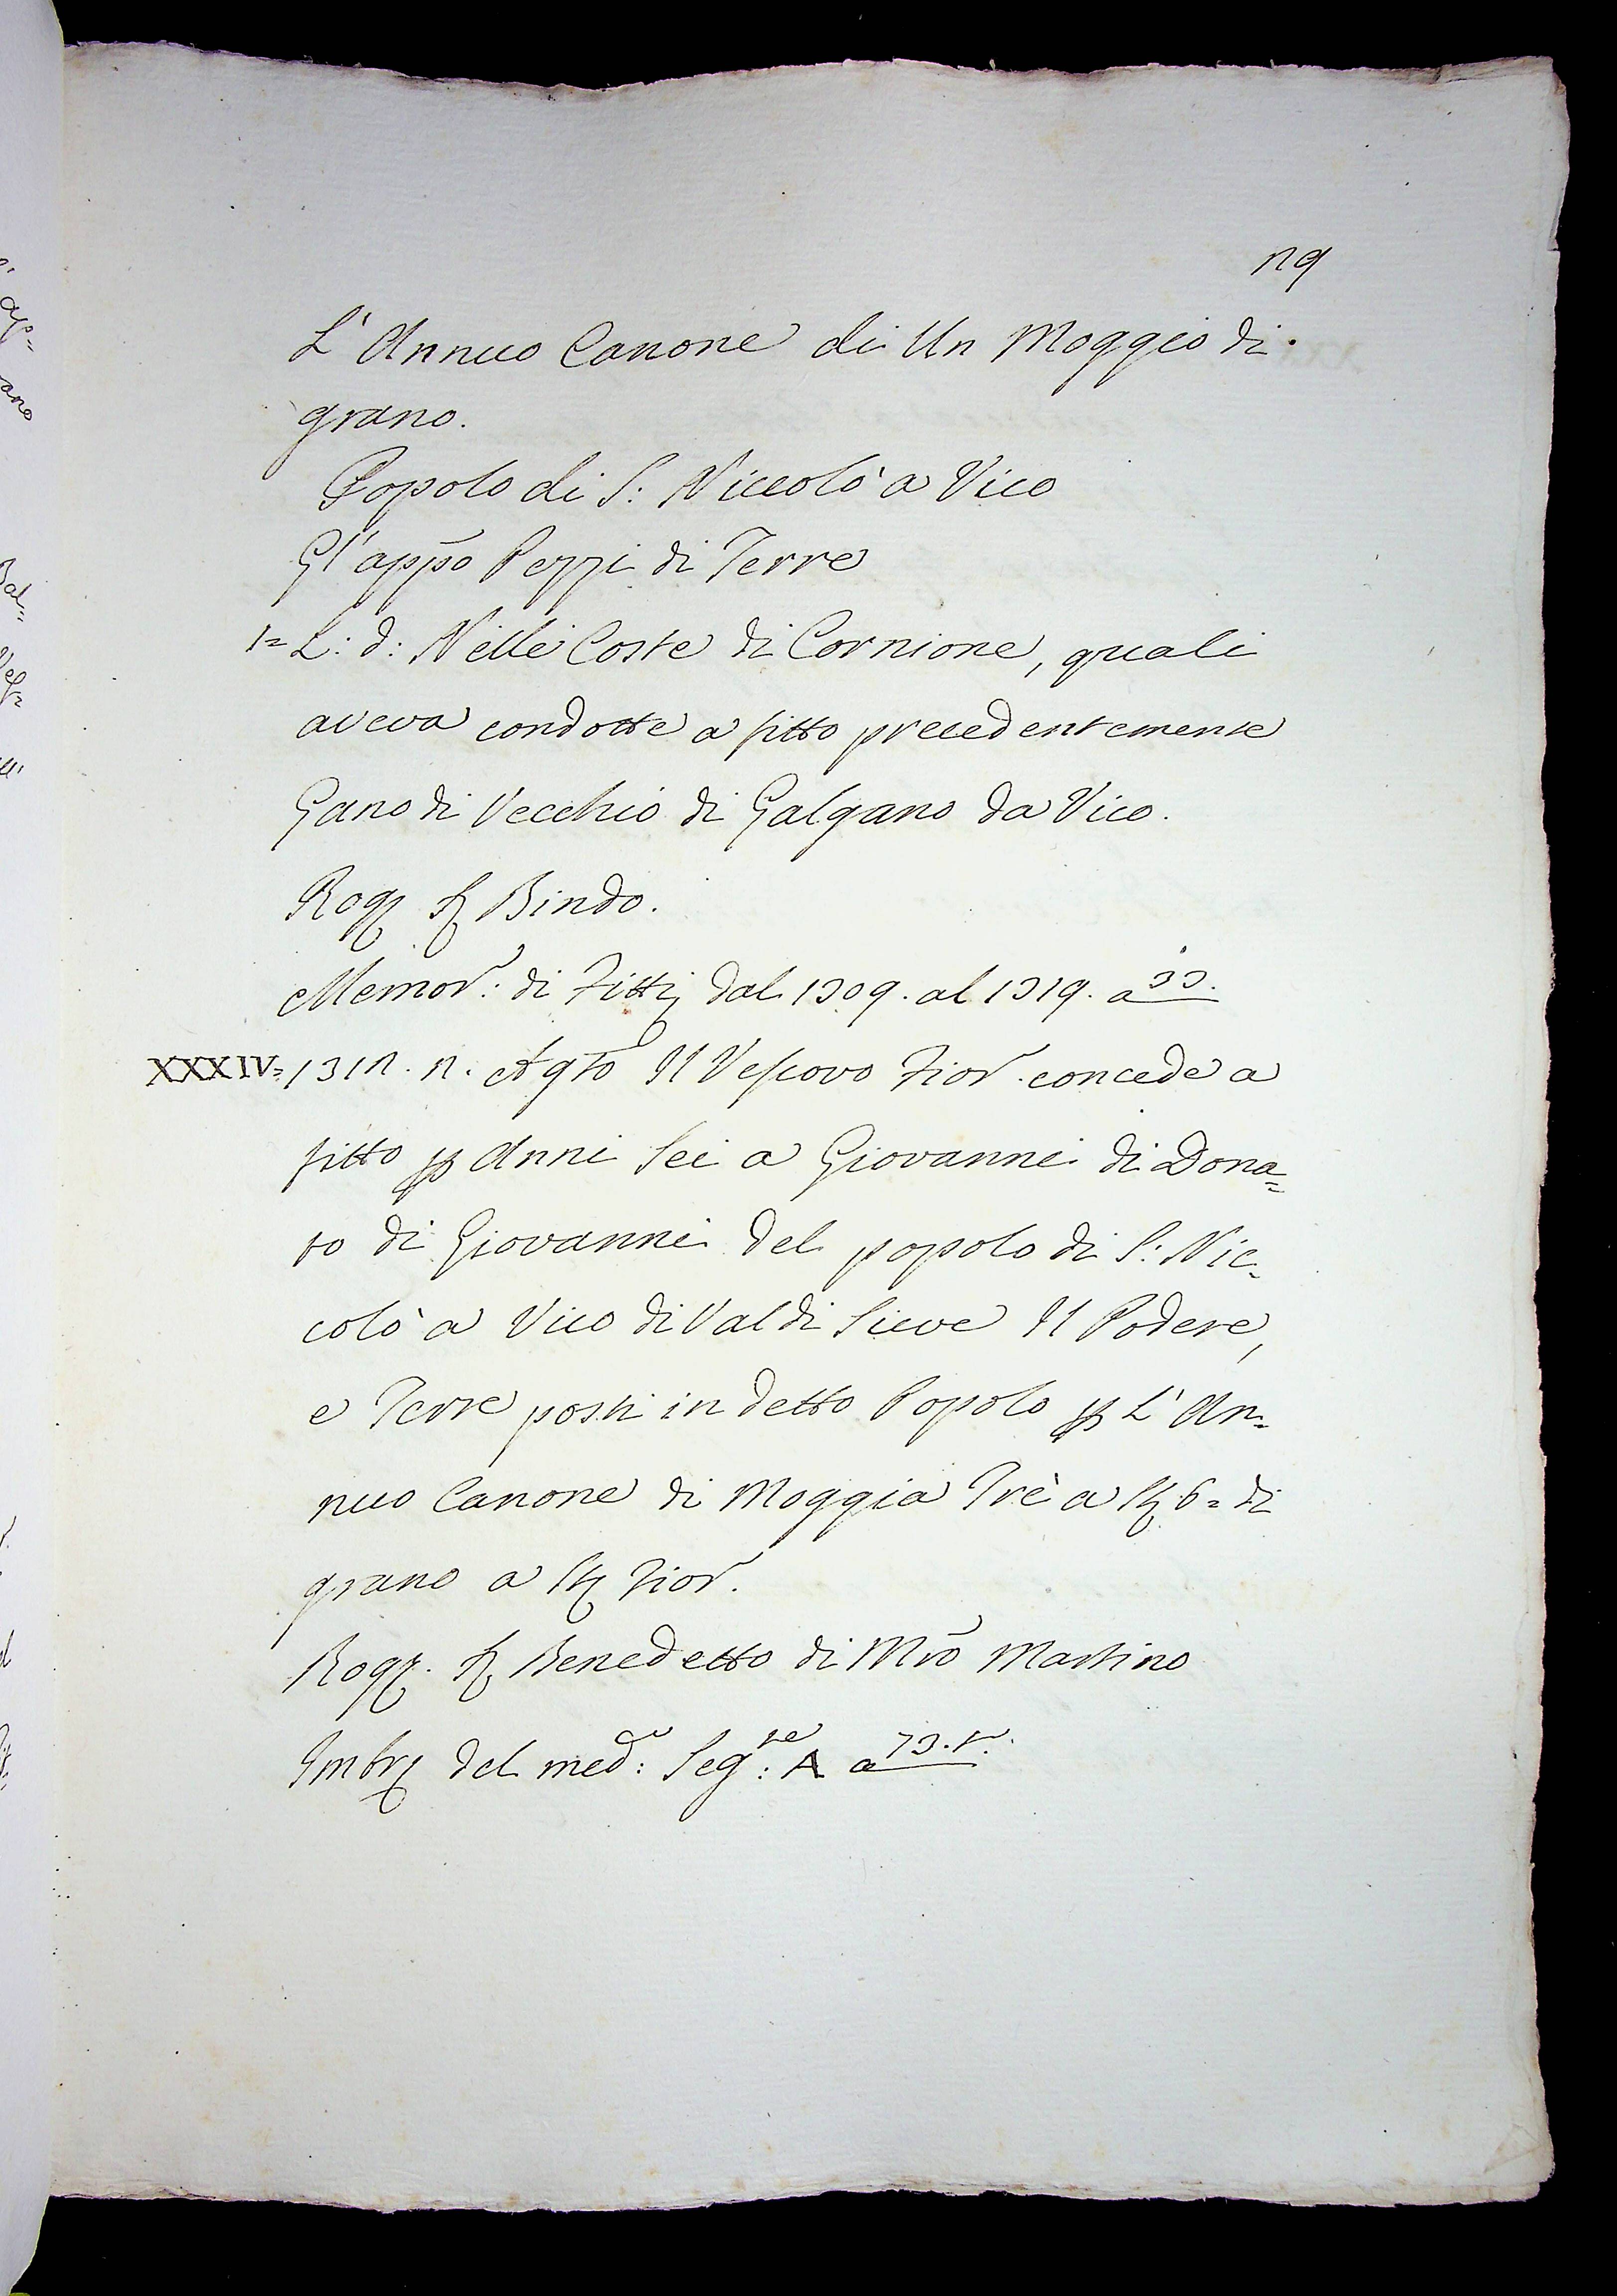 29
L' Annuo Canone di Un Moggio di
grano.
Popolo di S: Niccolò a Vico
Gl' app̃o Pezzi di Terre
1= L: d: Nelle Coste di Cornione, quali
aveva condotte a fitto precedentemente
Gano di Vecchio di Galgano da Vico.
Rog. S. Bindo.
Memor: di Fitti dal 1309. al 1319. a 33.
XXXIV= 1312. 2. Agto Il Vescovo Fior. concede a
fitto p Anni Sei a Giovanni di Dona=
to di Giovanni del popolo di S: Nic=
colò a Vico di Val di Sieve Il Podere,
e Terre posti in detto Popolo p L' An=
nuo Canone di Moggia Trè a St. 6= di
grano a St. Fior.
Rog. S. Benedetto di Mrõ Martino
Imbr. del med: Segte: A a 73. t.